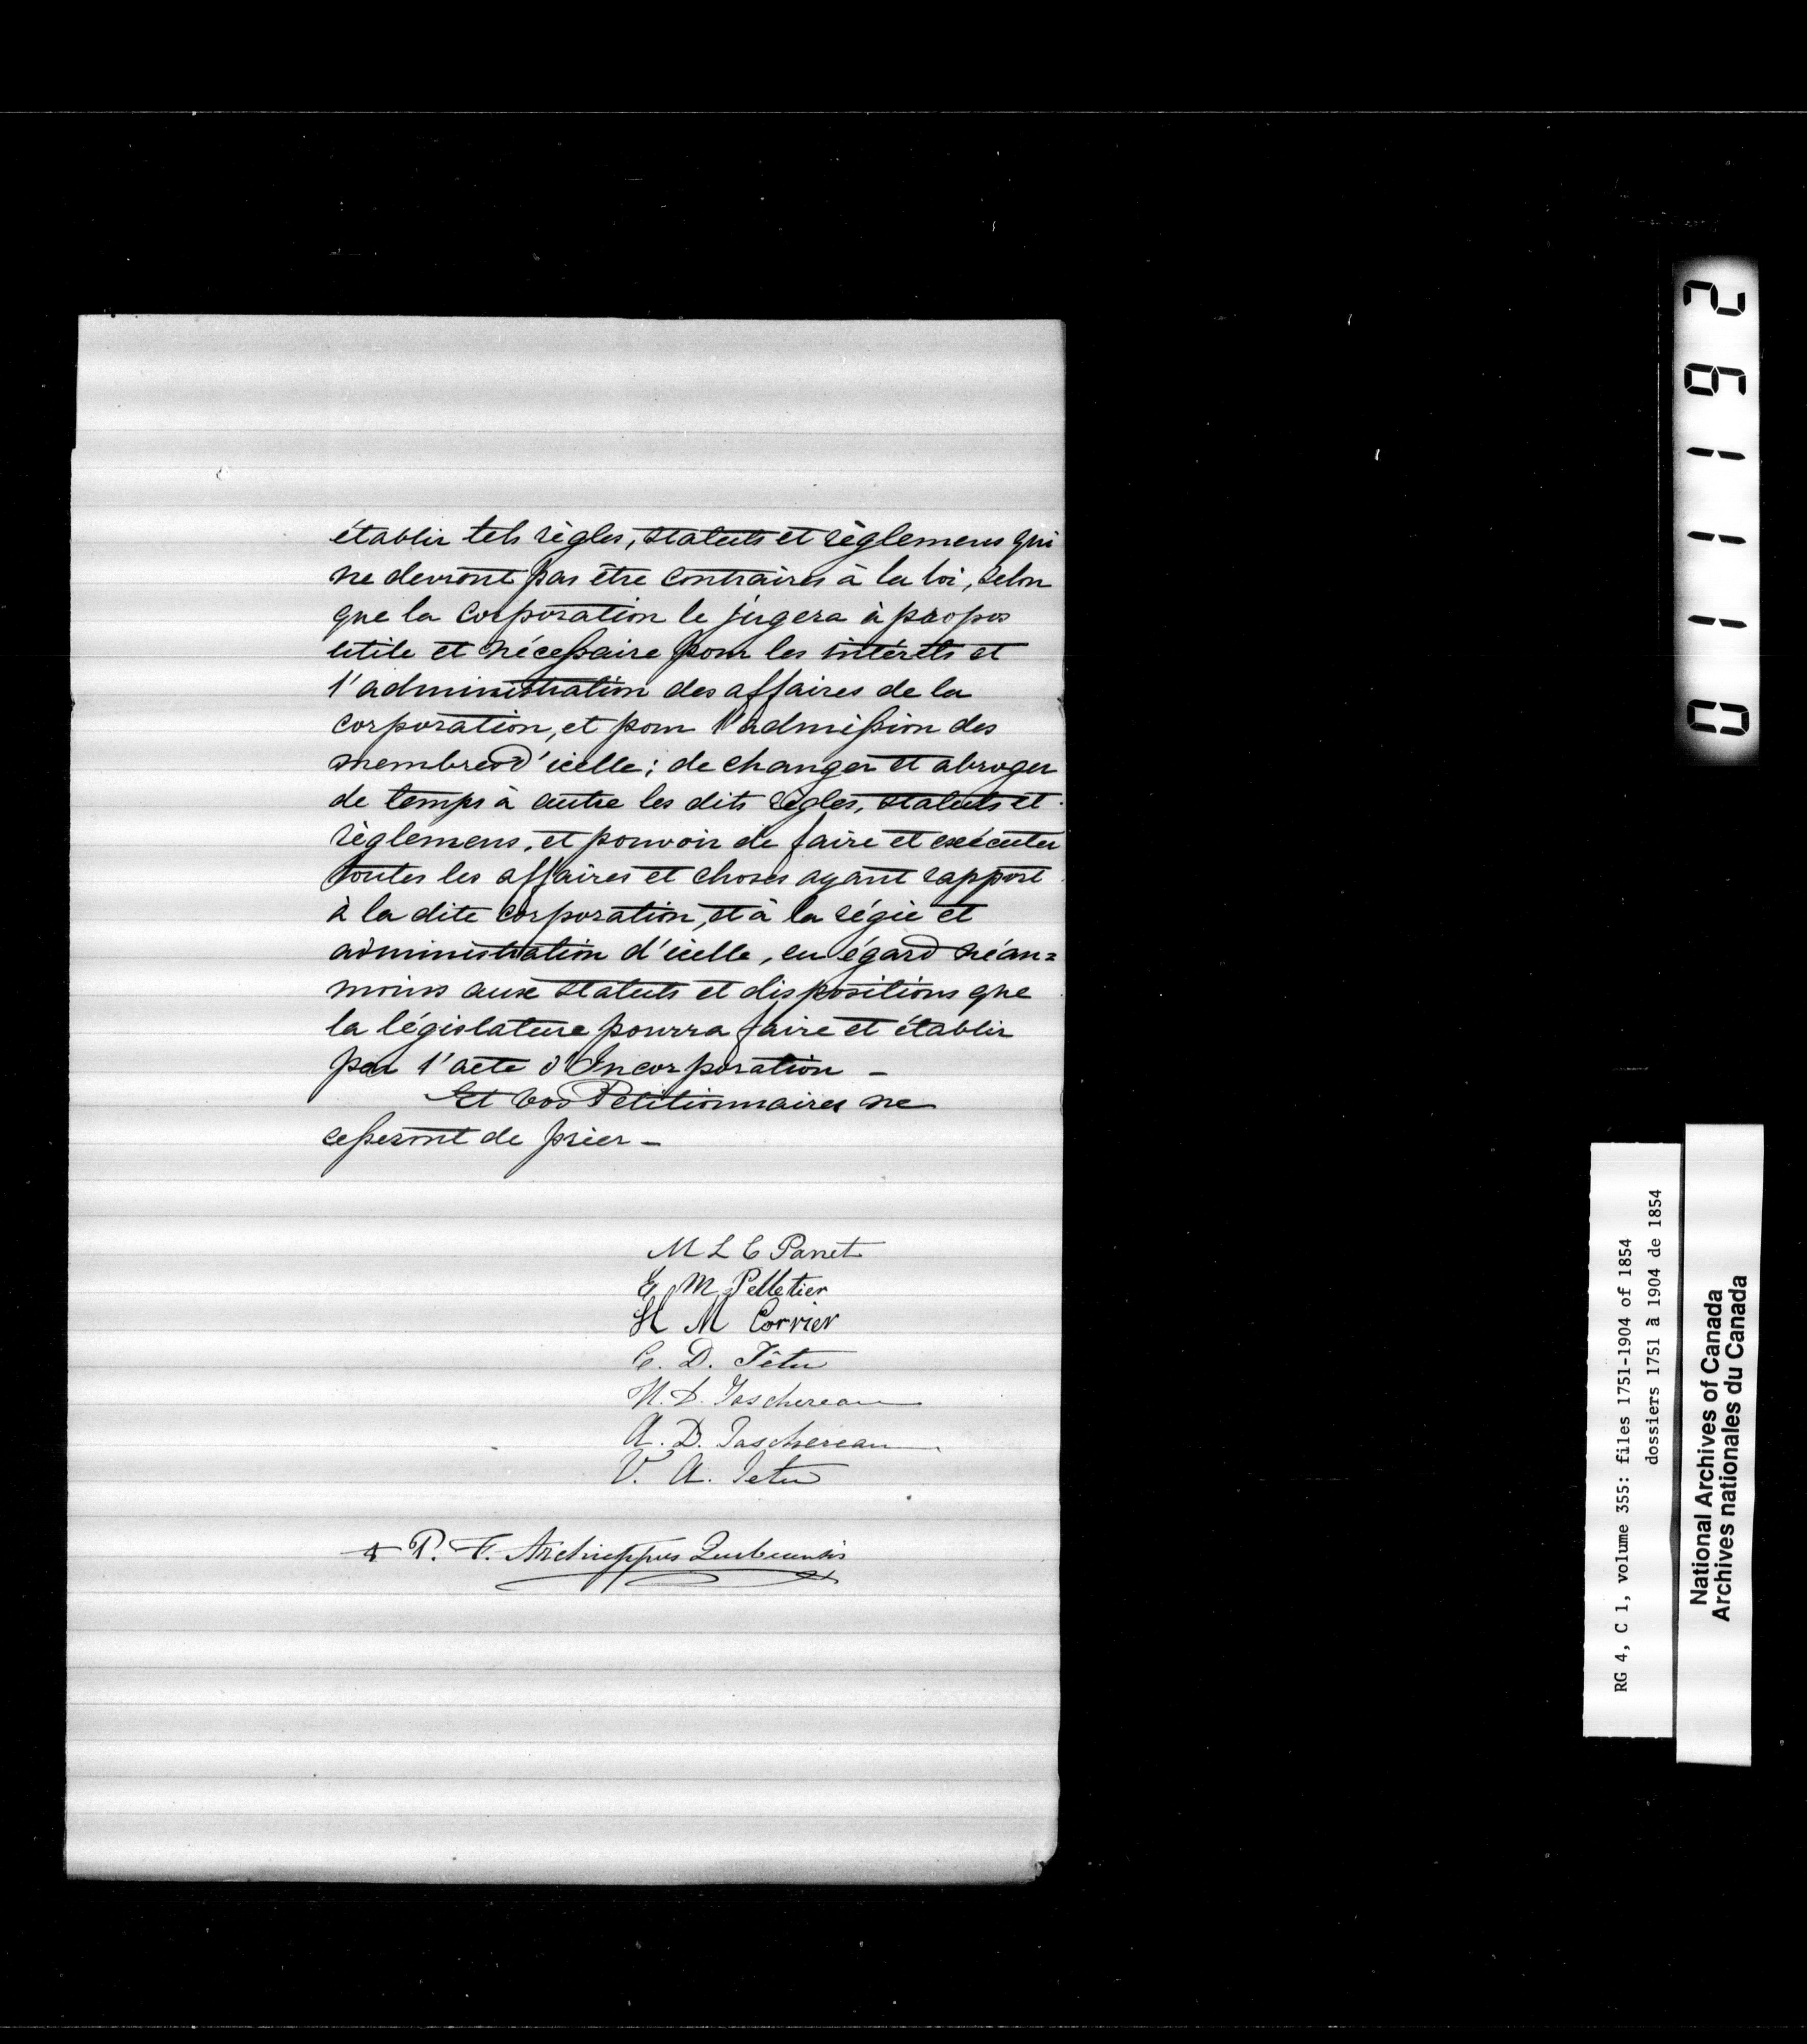 établir tels règles, statuts et règlemens qui
ne devront pas être contraires à la loi, selon
que la corporation le jugera à propos
utile et nécessaire pour les intérêts et
l'administration des affaires de la
corporation, et pour l'admission des
membres d'icelle; de changer et abroger
de temps à autre les dits règles, statuts et
règlemens, et pouvoir de faire et exécuter
toutes les affaires et choses ayant rapport
à la dite corporation, et à la régie et
administration d'icelle, eu égard néan=
moins aux statuts et dispositions que
la législature pourra faire et établir
par l'acte d'Incorporation -
Et vos Petitionnaires ne
cesseront de prier -
M L C Panet
E M Pelletier
H M Corrier
C. D. Têtu
H. D. Taschereau
A. D. Taschereau
V. A. Tetu
+ P. F. Archieppus Quebecensis
261110
RG 4, C 1, volume 355: files 1751-1904 of 1854
dossiers 1751 à 1904 de 1854
National Archives of Canada
Archives nationales du Canada